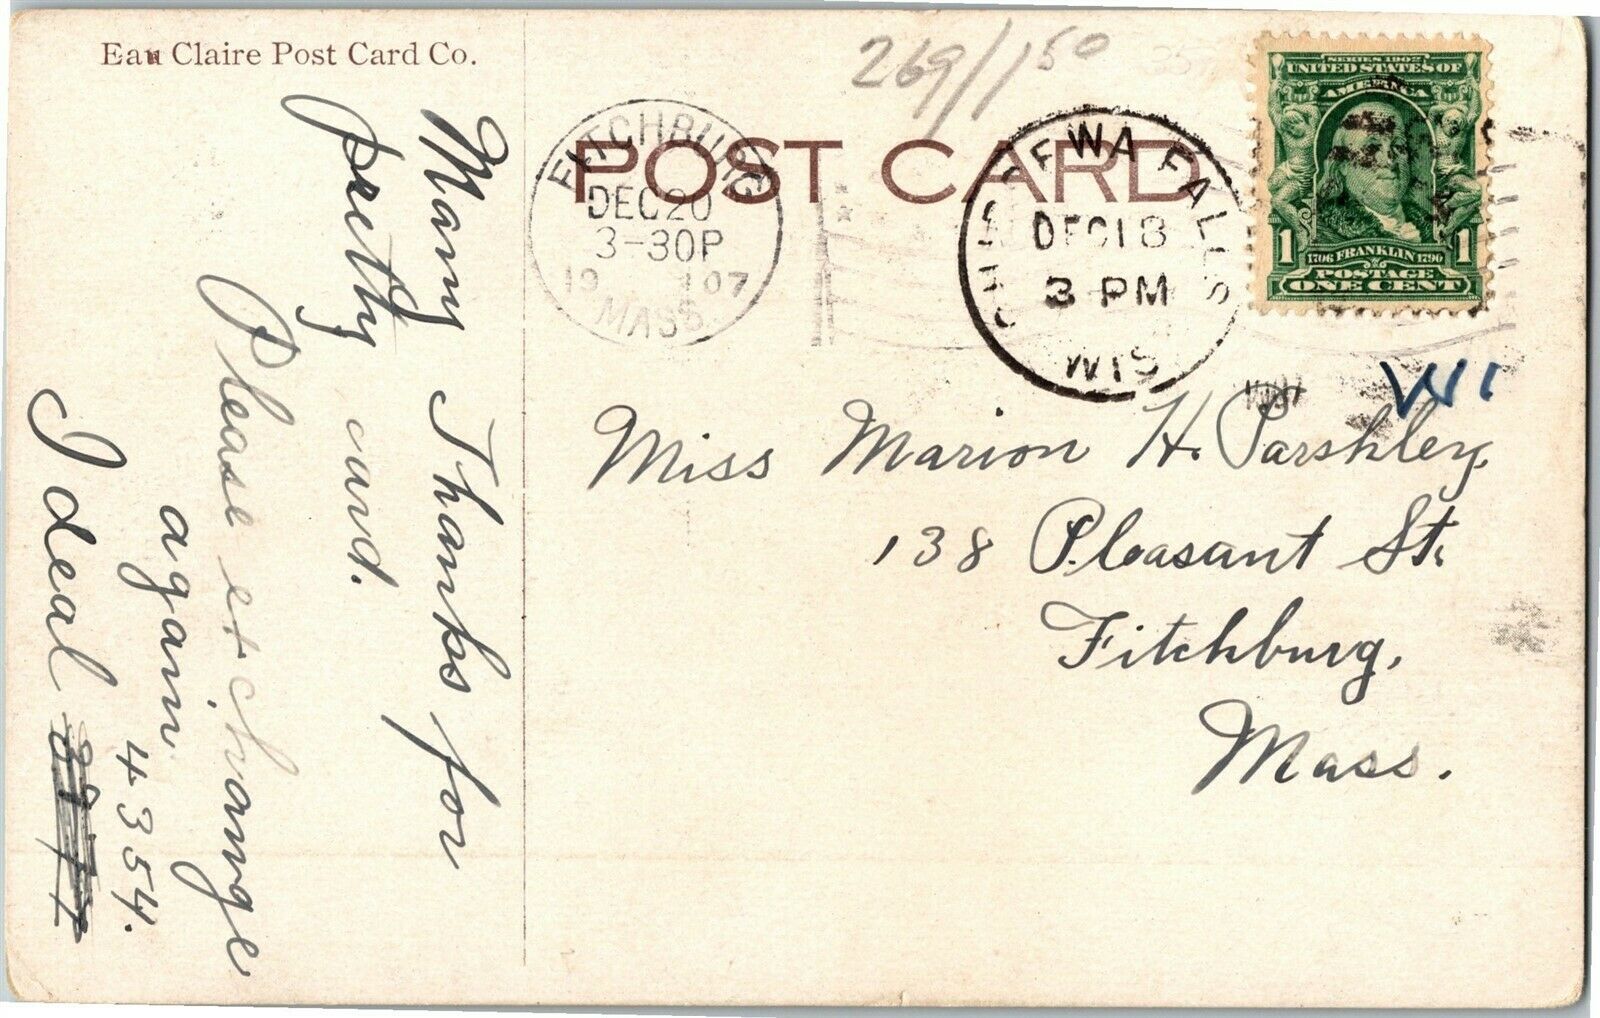 Eau Claire Post Card Co.
269/1 50
POST CARD
FITCHBURG
DEC 20
3-30P
1907
MASS.
CHIPPEWA FALLS
DEC 18
3 PM
WIS
SERIES 1902
UNITED STATES OF
AMERICA
1 1706 FRANKLIN 1790 1
POSTAGE
ONE CENT
WI
Miss Marion H. Parshley,
138 Pleasant St.
Fitchburg,
Mass.
Many Thanks for
pretty card.
Please exchange
again
4354.
I deal